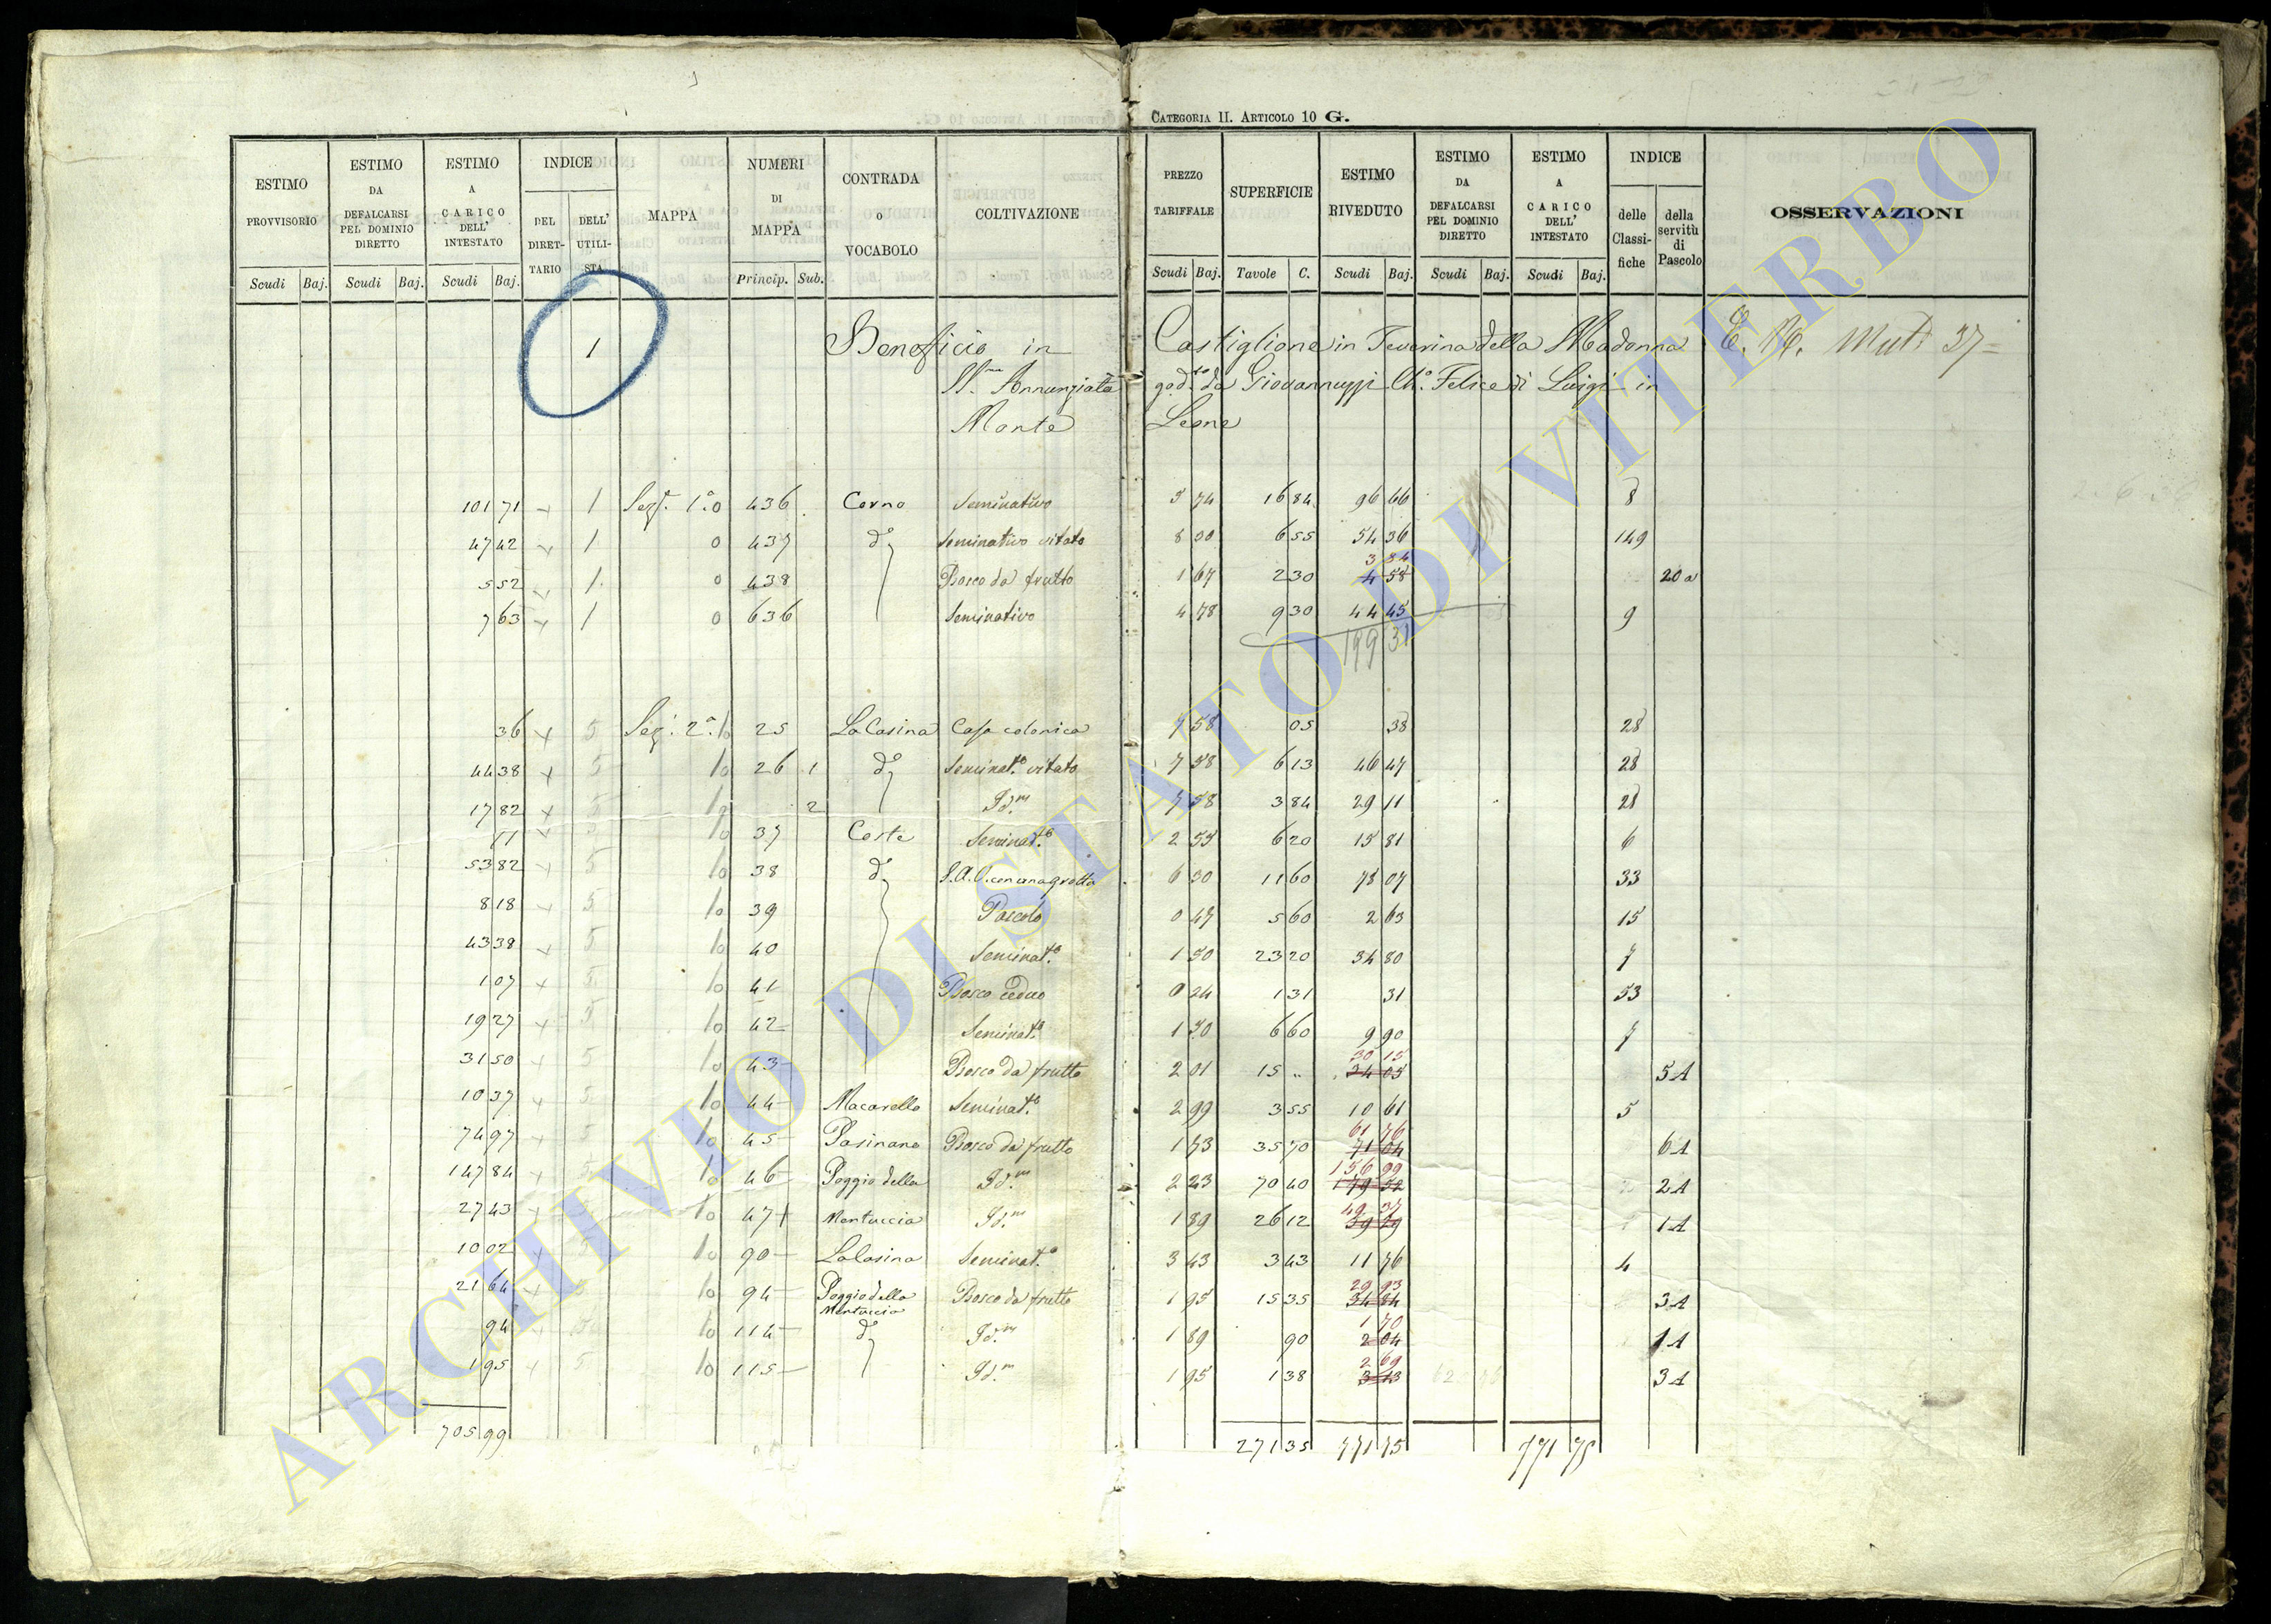 CATEGORIA II. ARTICOLO 10 G.
ESTIMO PROVVISORIO | ESTIMO DA DEFALCARSI PEL DOMINIO DIRETTO | ESTIMO A CARICO DELL' INTESTATO | INDICE | MAPPA | NUMERI DI MAPPA | CONTRADA O VOCABOLO | COLTIVAZIONE | PREZZO TARIFFALE | SUPERFICIE | ESTIMO RIVEDUTO | ESTIMO DA DEFALCARSI PEL DOMINIO DIRETTO | ESTIMO A CARICO DELL' INTESTATO | INDICE | OSSERVAZIONI
DEL DIRETTARIO | DELL' UTILISTA | delle Classifiche | della servitù di Pascolo
Scudi | Baj. | Scudi | Baj. | Scudi | Baj. | Princip. | Sub. | Scudi | Baj. | Tavole | C. | Scudi | Baj. | Scudi | Baj. | Scudi | Baj.
1 Beneficio in Castiglione in Teverina della Madonna E. N. Mut. 37=
SS.ma Annunziata god.to da Giovannuzzi Ch.o Felice di Luigi in
Monte Leone
101 71 1 Sez. 1.a 0 436 Corno Seminativo 5 74 16 84 96 66 8
47 42 1 0 437 d.o Seminativo vitato 8 30 6 55 54 36 149
3 84
5 52 1 0 438 Bosco da frutto 1 67 2 30 4 58 20 a
7 63 1 0 636 Seminativo 4 78 9 30 44 45 9
199 31
36 5 Sez. 2.a 10 25 La Casina Casa colonica 7 58 05 38 28
44 38 5 10 26 1 d.o Seminat.o vitato 7 58 6 13 46 47 28
17 82 5 10 2 Id.m 7 58 3 84 29 11 28
11 5 10 37 Coste Seminat.o 2 55 6 20 15 81 6
53 82 5 10 38 d.o S.A.V. con una grotta 6 30 11 60 78 07 33
8 18 5 10 39 Pascolo 0 47 5 60 2 63 15
43 38 5 10 40 Seminat.o 1 50 23 20 34 80 7
1 07 5 10 41 Bosco ceduo 0 24 1 31 31 53
19 27 5 10 42 Seminat.o 1 50 6 60 9 90 7
30 15
31 50 5 10 43 Bosco da frutto 2 01 15 " 34 05 5 A
10 37 5 10 44 Macarello Seminat.o 2 99 3 55 10 61 5
61 76
74 97 5 10 45 Pasinano Bosco da frutto 1 73 35 70 71 04 6 A
156 99
147 84 5 10 46 Poggio della Id.m 2 23 70 40 179 52 2 A
49 37
27 43 10 47 Mentuccia Id.m 1 89 26 12 59 29 1 A
10 02 5 10 90 La Casina Seminat.o 3 43 3 43 11 76 4
29 93
21 64 10 94 Poggio della Mentuccia Bosco da frutto 1 95 15 35 34 84 3 A
1 70
94 5 10 114 d.o Id.m 1 89 90 2 04 1 A
2 69
1 95 5 10 115 Id.m 1 95 1 38 3 13 3 A
705 99 271 35 771 75 771 75
ARCHIVIO DI STATO DI VITERBO